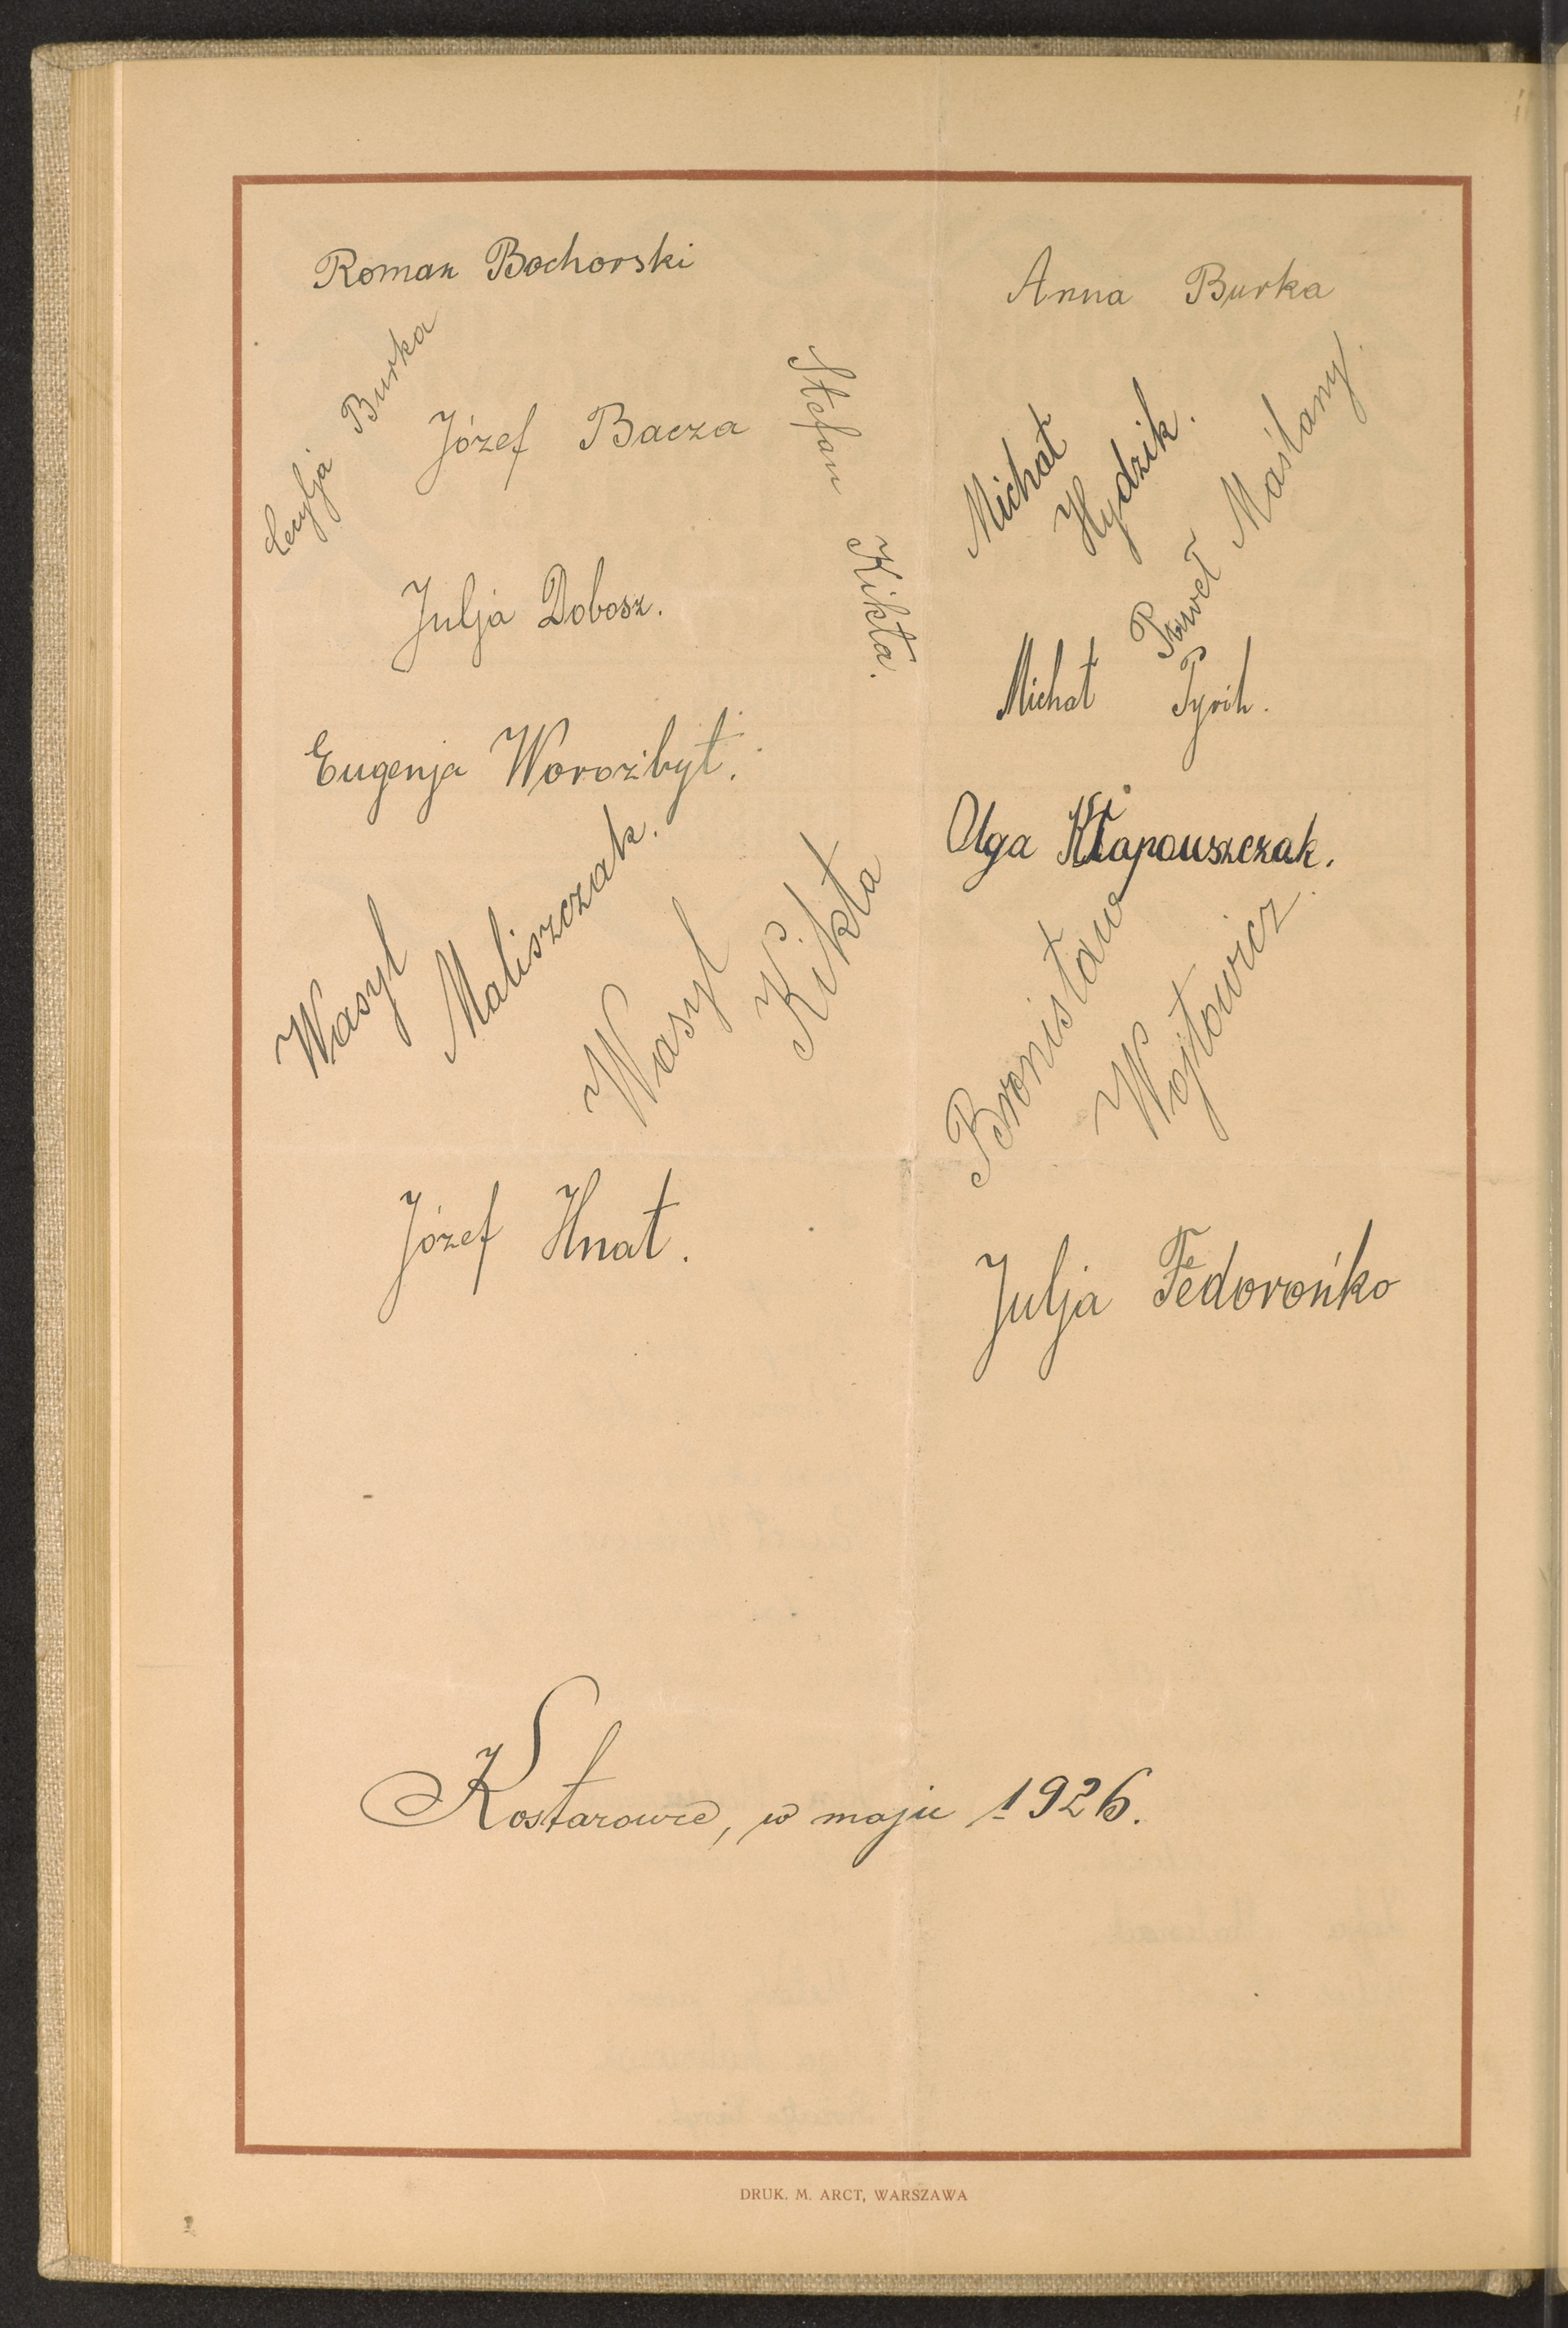 Roman Bochorski
Anna Burka
Cecylja Burka
Józef Bacza
Stefan Kikta.
Michał
Hydzik.
Paweł Maślany.
Julja Dobosz.
Michał Pyrih.
Eugenja Worożbyt.
Olga Kłapouszczak.
Wasyl
Maliszczak.
Wasyl
Kikta
Bronisław
Wojtowicz.
Józef Hnat.
Julja Fedorońko
Kostarowce, w maju 1926.
DRUK. M. ARCT, WARSZAWA